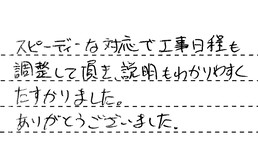 スピーディーな対応で工事日程も
調整して頂き、説明もわかりやすく
たすかりました。
ありがとうございました。